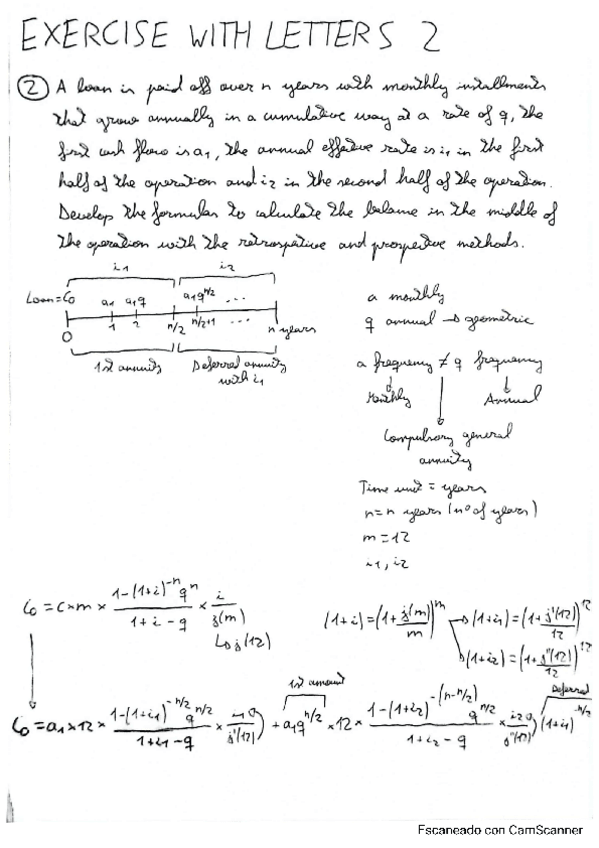 EXERCISE WITH LETTERS 2
② A loan is paid off over n years with monthly installments
that grow annually in a cumulative way at a rate of q, the
first cash flow is a1, the annual effective rate is i1 in the first
half of the operation and i2 in the second half of the operation.
Develop the formulas to calculate the balance in the middle of
the operation with the retrospective and prospective methods.
i1 i2
Loan=C0 a1 a1q a1q^n/2 ...
0 1 2 n/2 n/2+1 ... n years
1st annuity Deferred annuity
with i1
a monthly
q annual → geometric
a frequency ≠ q frequency
Monthly Annual
Compulsory general
annuity
Time unit = years
n = n years (nº of years)
m = 12
i1, i2
C0 = C×m × (1-(1+i)^-n q^n)/(1+i-q) × i/j(m)
↳ j(12)
(1+i) = (1+j(m)/m)^m → (1+i1) = (1+j'(12)/12)^12
→ (1+i2) = (1+j''(12)/12)^12
1st amount Deferred
C0 = a1×12 × (1-(1+i1)^-n/2 q^n/2)/(1+i1-q) × i1/j'(12) + a1q^n/2 × 12 × (1-(1+i2)^-(n-n/2) q^n/2)/(1+i2-q) × i2/j''(12) (1+i1)^-n/2
Escaneado con CamScanner